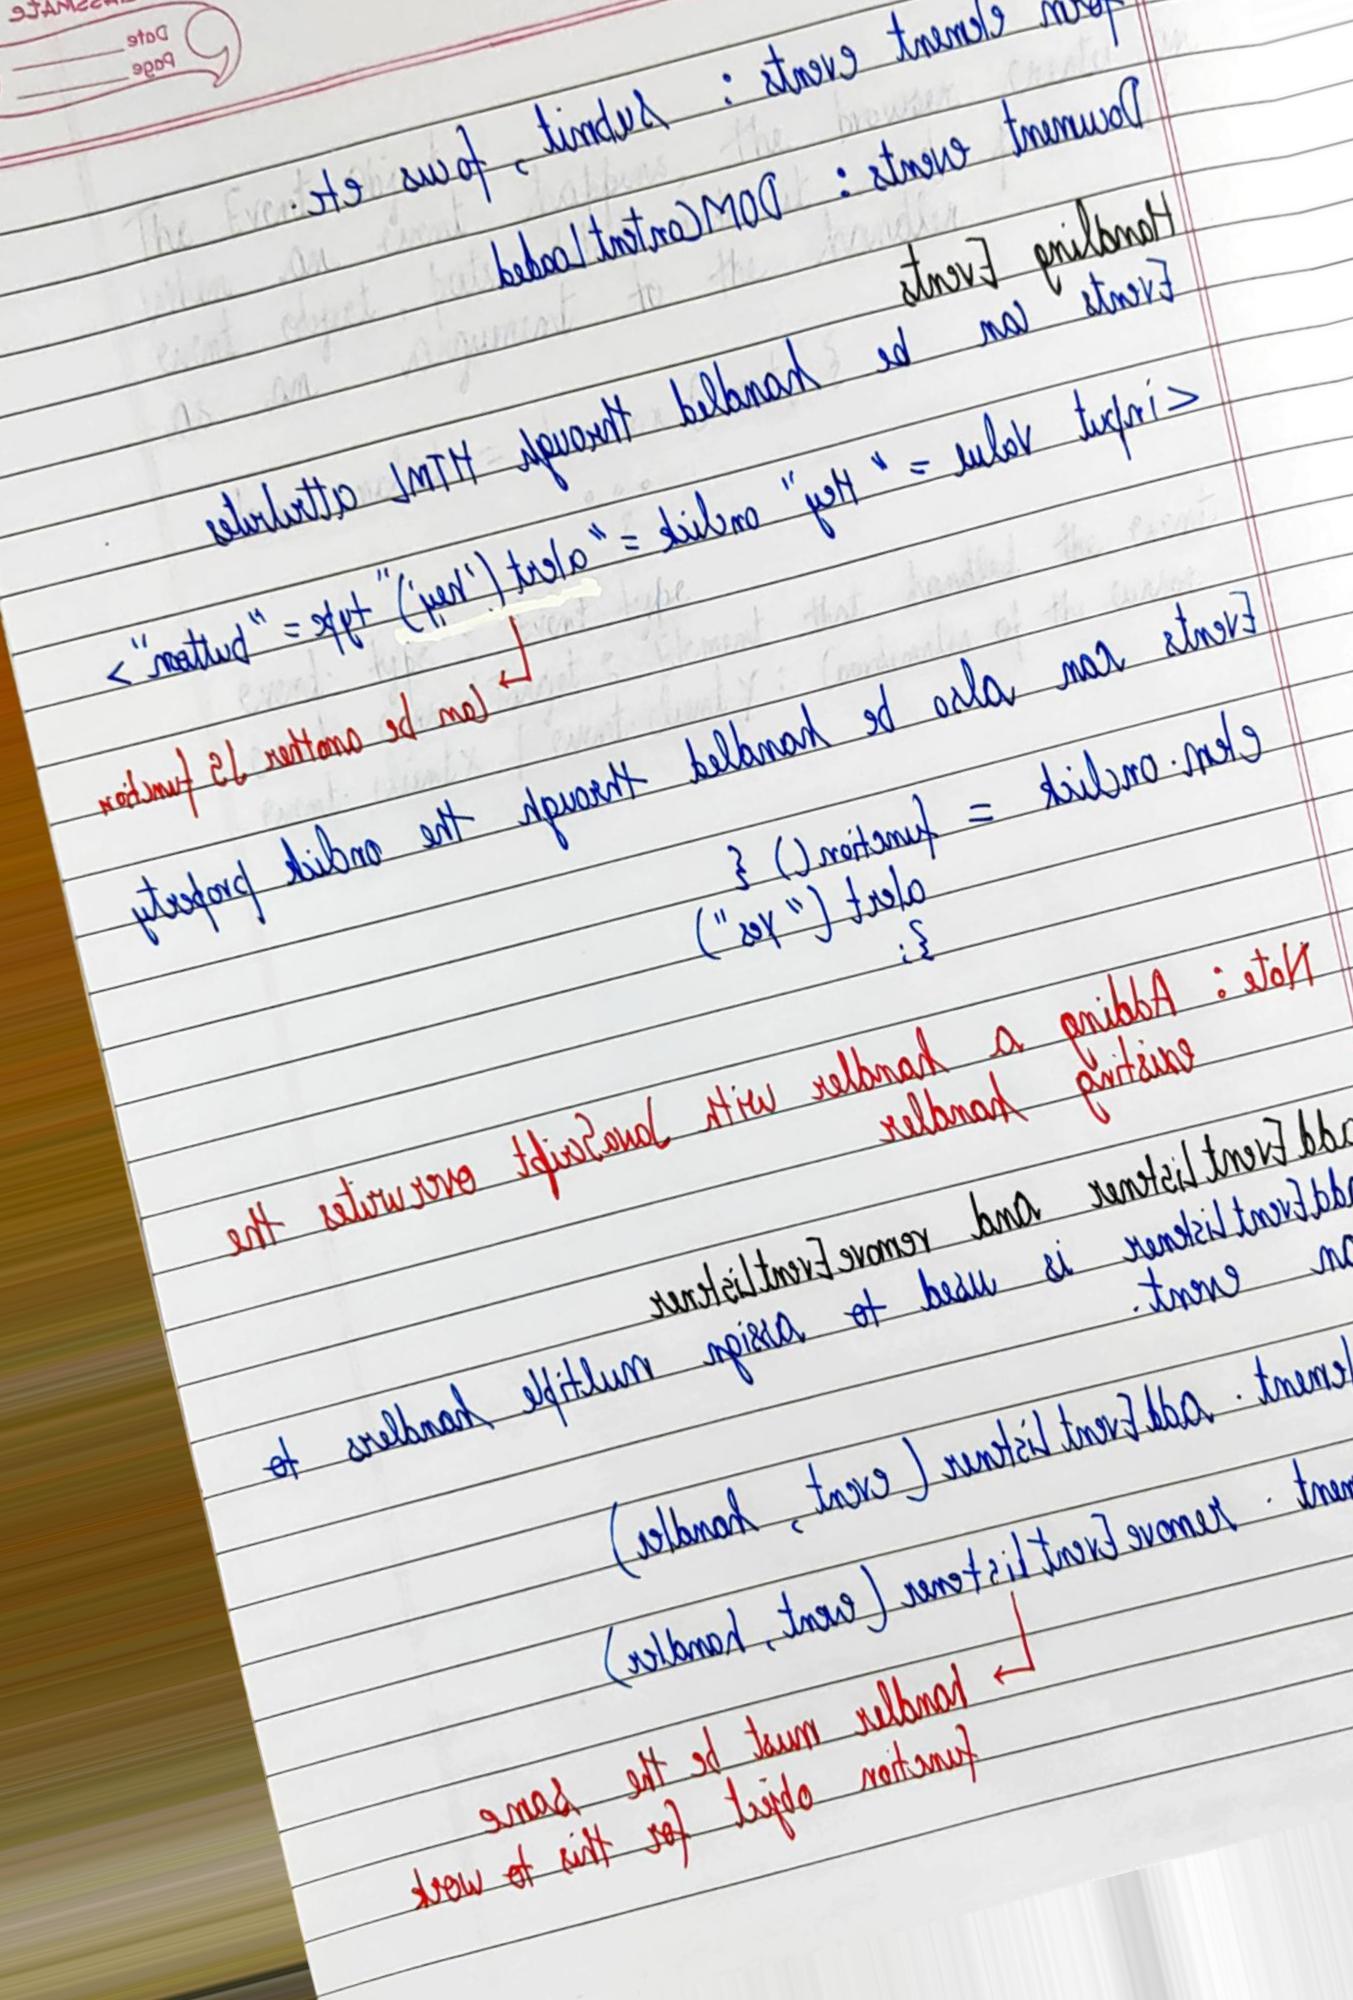 CLASSMATE
Date
Page
form element events : submit, focus etc.
Document events : DOMContentLoaded
Handling Events
Events can be handled through HTML attributes
<input value = "Hey" onclick = "alert('hey')" type = "button">
Can be another JS function
Events can also be handled through the onclick property
elem.onclick = function() {
alert ("Yes")
};
Note : Adding a handler with JavaScript overwrites the
existing handler
addEventListener and removeEventListener
addEventListener is used to assign multiple handlers to
an event.
element.addEventListener (event, handler)
ment.removeEventListener (event, handler)
handler must be the same
function object for this to work